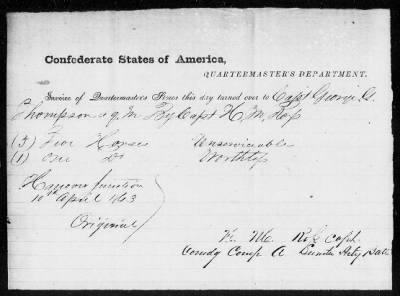 Confederate States of America,
QUARTERMASTER'S DEPARTMENT.
Invoice of Quartermaster's Stores this day turned over to Capt George G.
Thompson a q m By Capt H. M. Ross
Horses Unserviceable
(1) One Do Worthless
Hanover Junction
10th April 1863
Original
H. M. Ross Capt
Comdg Comp A Arty Batt